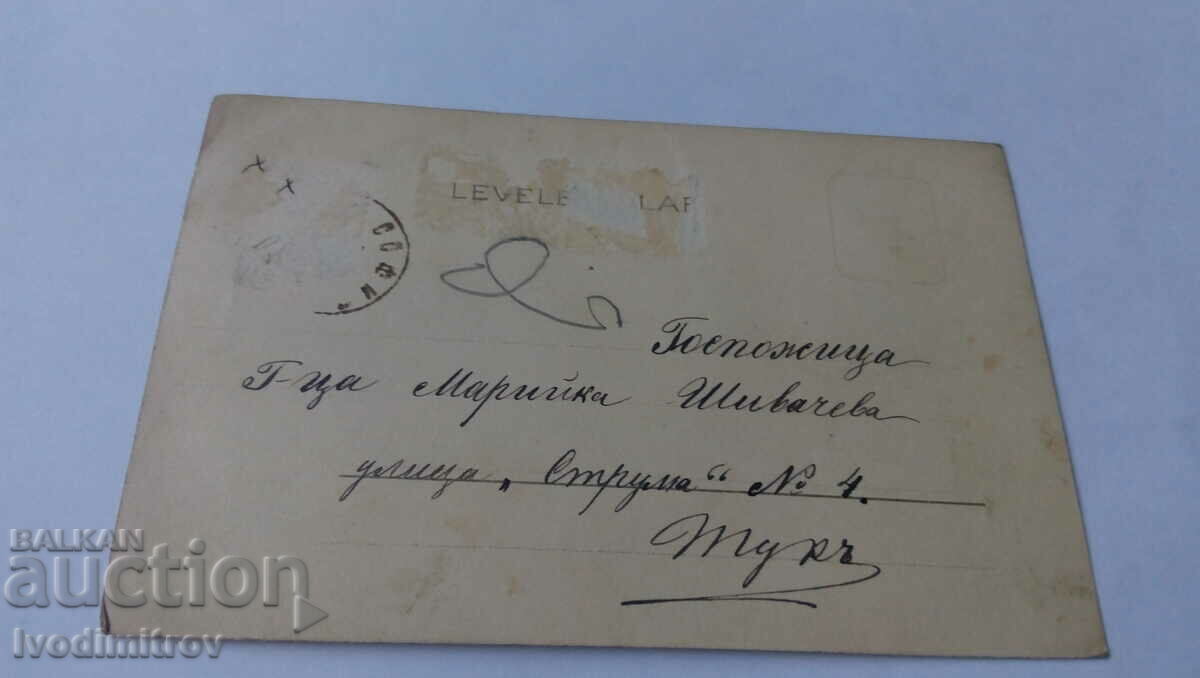 x x
LEVELE LAP
СОФИ
Госпожица
Г-ца Марийка Шивачева
улица „Струма“ № 4.
Тукъ
BALKAN
auction
Ivodimitrov